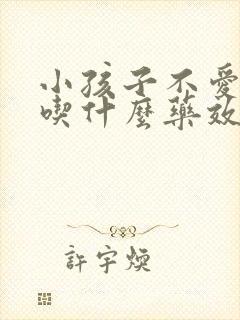 小孩子不愛
喫什麼藥效
許宇煥